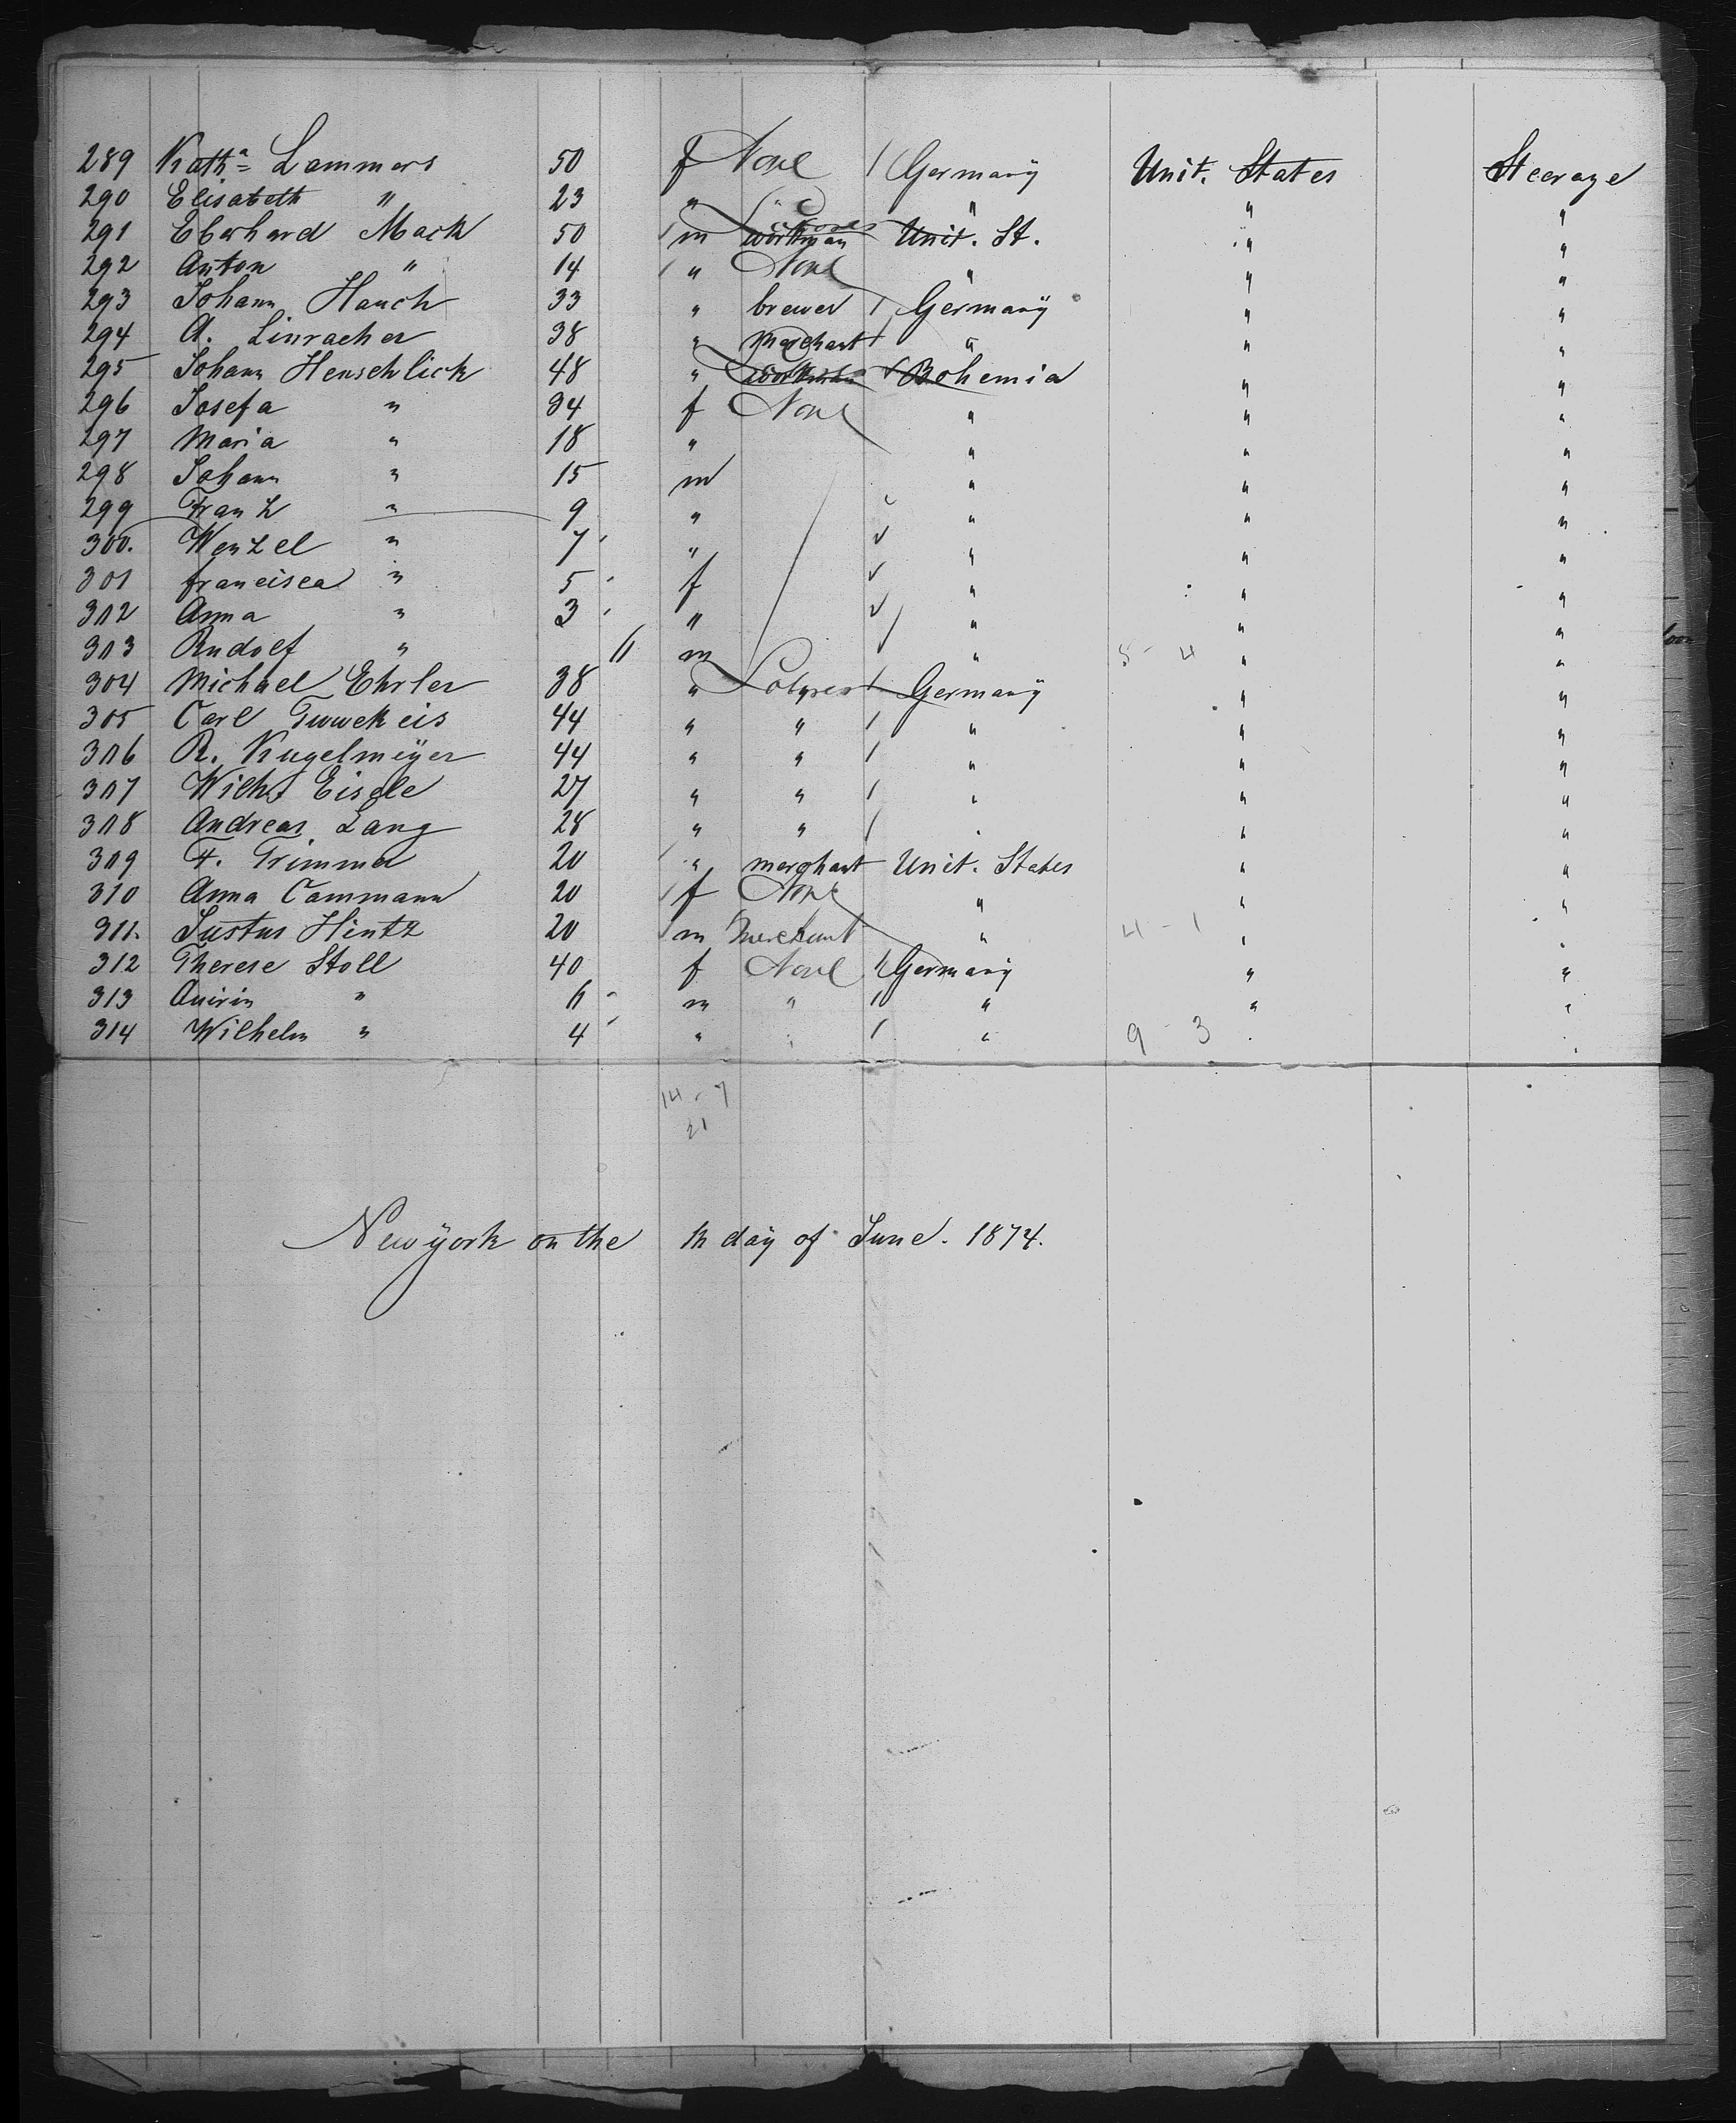 289 Kathª Lammers 50 f None Germany Unit. States Steerage
290 Elisabeth " 23 " " " " "
291 Eberhard Mack 50 m workman Unit. St. " "
292 Anton " 14 " None " " "
293 Johann Hauch 33 " brewer Germany " "
294 A. Linracher 38 " merchant " " "
295 Johann Henschlick 48 " Bohemia " "
296 Josefa " 34 f None " " "
297 Maria " 18 " " " "
298 Johann " 15 m " " "
299 Franz " 9 " " " "
300. Wenzel " 7 " " " "
301 francisca " 5 f " " "
302 Anna " 3 " " " "
303 Rudolf " m " 5 - 4 " "
304 Michael Ehrler 38 " Germany " "
305 Carl 44 " " " " "
306 R. Kugelmeÿer 44 " " " " "
307 Wilh. Eisele 27 " " " " "
308 Andreas Lang 28 " " " " "
309 F. Trimmer 20 " merchant Unit. States " "
310 Anna Cammann 20 f None " " "
311. Justus Hintz 20 m Merchant " 4 - 1 " "
312 Therese Stoll 40 f None Germany " "
313 Quirin " 6 m " " " "
314 Wilhelm " 4 " " " 9 - 3 " "
14 - 7
21
New ÿork on the day of June. 1874.